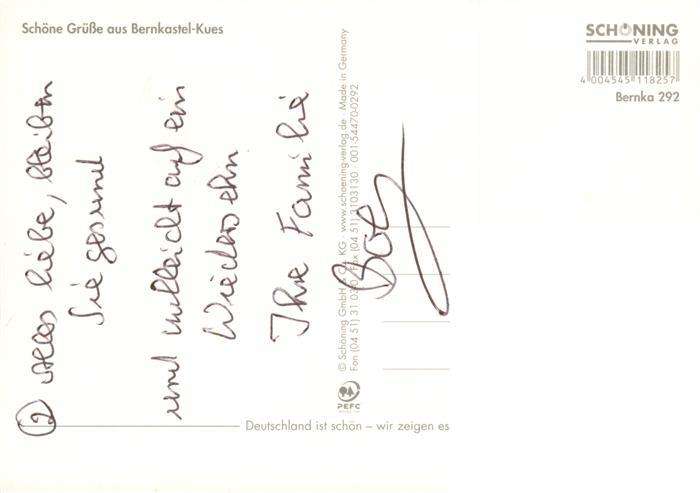 Schöne Grüße aus Bernkastel-Kues
SCHÖNING
VERLAG
4 004545 118257
Bernka 292
② Alles liebe, bleiben
Sie gesund
und vielleicht auf ein
Wiedersehn
Ihre Familie
© Schöning GmbH & Co. KG · www.schoening-verlag.de · Made in Germany
Fon (04 51) 31 03 0 · Fax (04 51) 3103130 · 001-54470-0292
PEFC
Deutschland ist schön – wir zeigen es